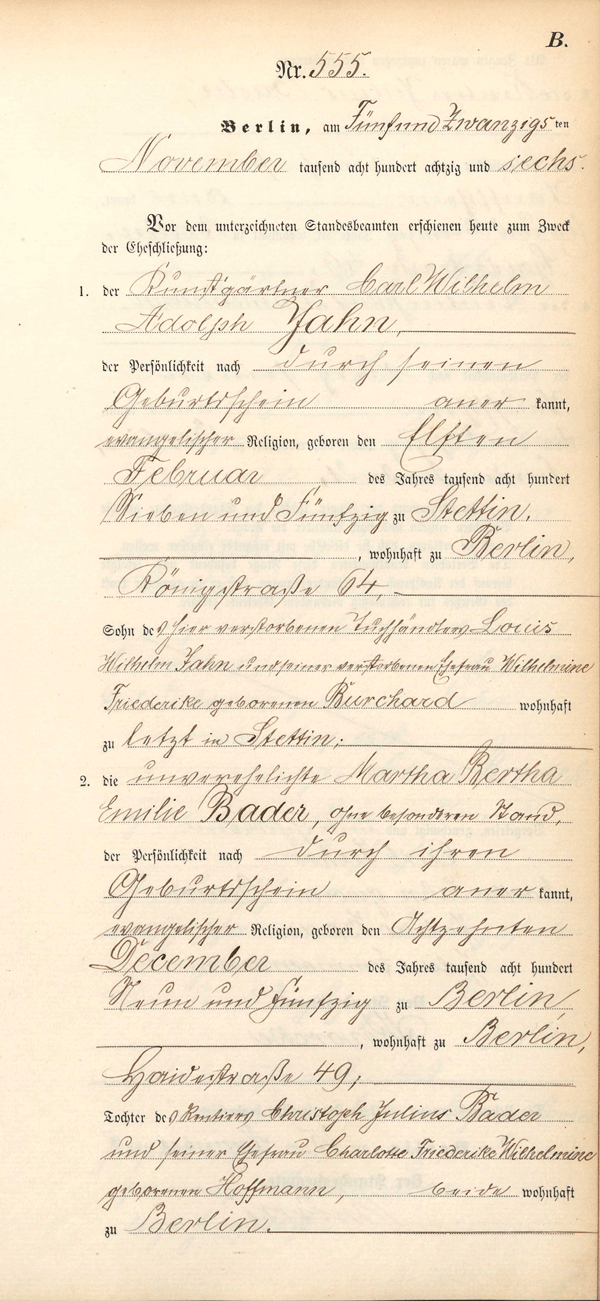 B.
Nr. 555.
Berlin, am Fünfund Zwanzigs ten
November tausend acht hundert achtzig und sechs.
Vor dem unterzeichneten Standesbeamten erschienen heute zum Zweck
der Eheschließung:
1. der Kunstgärtner Carl Wilhelm
Adolph Jahn,
der Persönlichkeit nach durch seinen
Geburtsschein aner kannt,
evangelischer Religion, geboren den Elften
Februar des Jahres tausend acht hundert
Sieben und Fünfzig zu Stettin,
, wohnhaft zu Berlin,
Königstraße 64,
Sohn des hier verstorbenen Tuchhändlers Louis
Wilhelm Jahn und seiner verstorbenen Ehefrau Wilhelmine
Friederike geborenen Burchard wohnhaft
zu letzt in Stettin;
2. die unverehelichte Martha Bertha
Emilie Bader, ohne besonderen Stand,
der Persönlichkeit nach durch ihren
Geburtsschein aner kannt,
evangelischer Religion, geboren den Achtzehnten
December des Jahres tausend acht hundert
Neun und Fünfzig zu Berlin,
, wohnhaft zu Berlin,
Haidestraße 49;
Tochter des Rentiers Christoph Julius Bader
und seiner Ehefrau Charlotte Friederike Wilhelmine
geborenen Hoffmann, beide wohnhaft
zu Berlin.